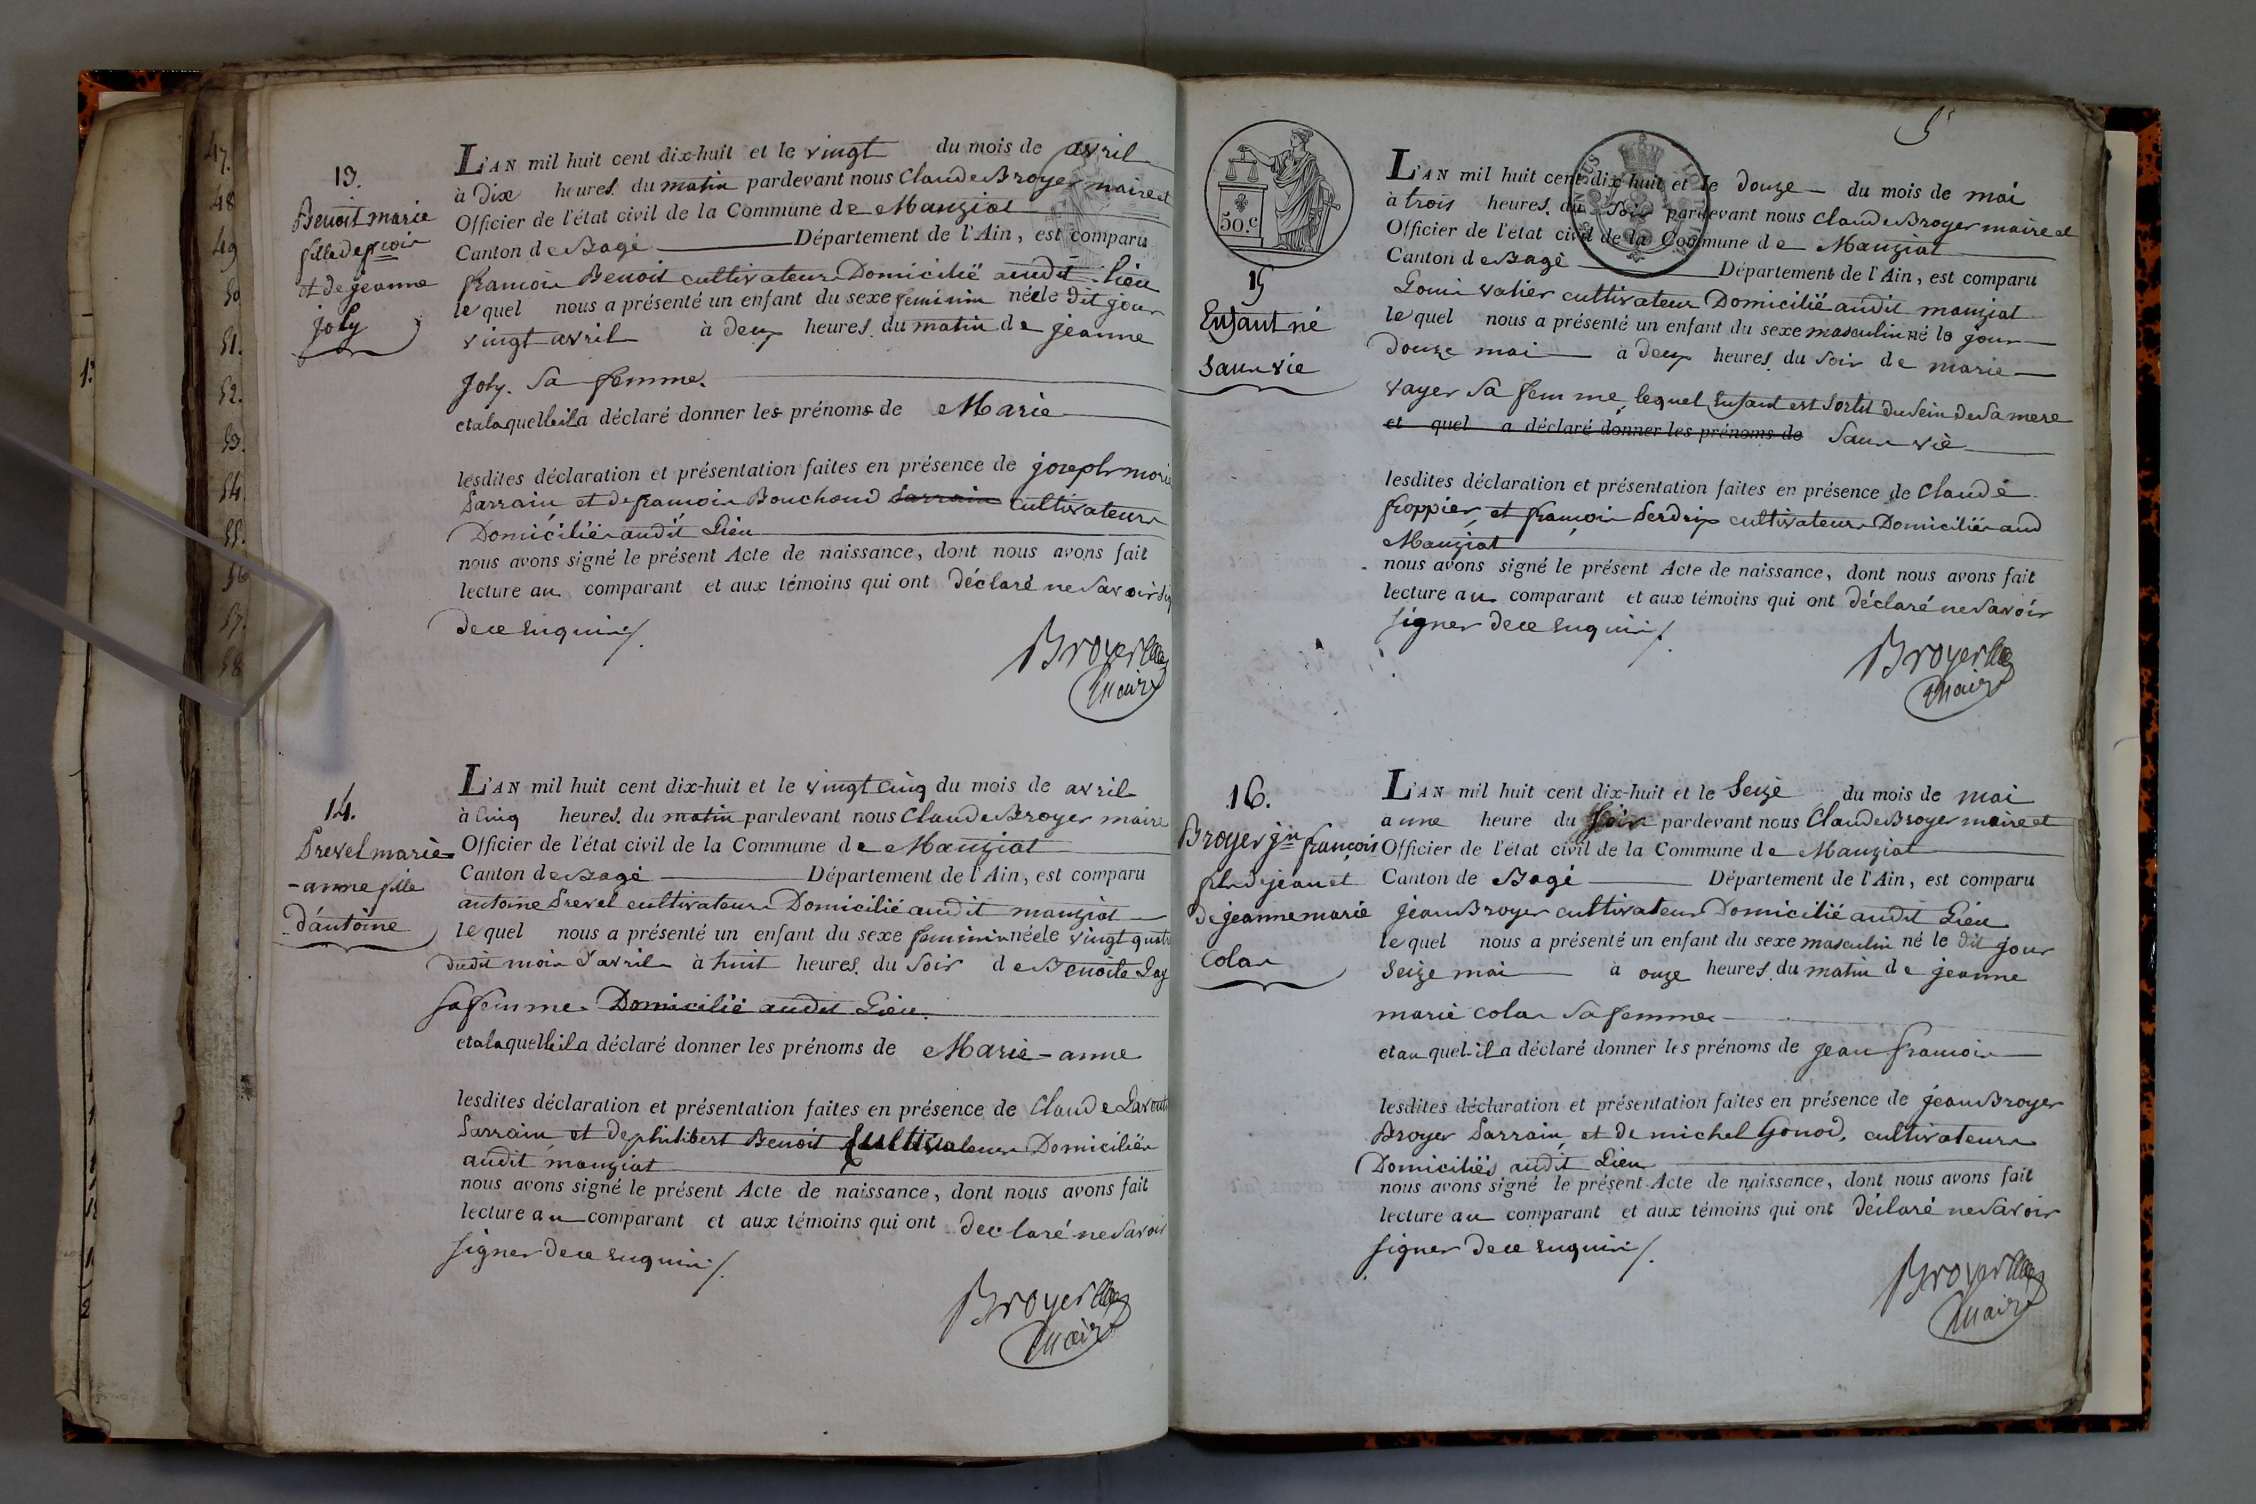 47.
48
49
50
51.
52.
53.
54.
55.
56
57.
58
13.
Benoit marie
fille de fcois
et de jeanne
joly
L'AN mil huit cent dix-huit et le vingt du mois de avril
à Dix heures du matin pardevant nous Claude Broyer maire et
Officier de l'état civil de la Commune de Manziat
Canton de Bagé Département de l'Ain, est comparu
françois Benoit cultivateur Domicilié audit Lieu
lequel nous a présenté un enfant du sexe feminin née le dit jour
vingt avril à deux heures du matin de jeanne
joly. sa femme.
et a laquelle il a déclaré donner les prénoms de Marie
lesdites déclaration et présentation faites en présence de joseph marie
Sarrain et de francois Bouchoud Sarrain cultivateurs
Domiciliés audit Lieu
nous avons signé le présent Acte de naissance, dont nous avons fait
lecture au comparant et aux témoins qui ont déclaré ne savoir sig
de ce enquis /.
Broyer
maire
14.
Prevel marie
-anne fille
d'antoine
L'AN mil huit cent dix-huit et le vingt cinq du mois de avril
à cinq heures du matin pardevant nous Claude Broyer maire
Officier de l'état civil de la Commune de Manziat
Canton de Bagé Département de l'Ain, est comparu
antoine Prevel cultivateur Domicilié audit manziat
lequel nous a présenté un enfant du sexe feminin née le vingt quatre
dudit mois d'avril à huit heures du soir de Benoite
sa femme. Domicilié audit Lieu.
et a laquelle il a déclaré donner les prénoms de Marie-anne
lesdites déclaration et présentation faites en présence de Claude
Sarrain et de philibert Benoit cultivateurs Domiciliés
audit manziat
nous avons signé le présent Acte de naissance, dont nous avons fait
lecture au comparant et aux témoins qui ont declaré ne savoir
signer de ce enquis /.
Broyer
maire
5
50.c
15
Enfant né
sans vie
L'AN mil huit cent dix-huit et le douze du mois de mai
à trois heures du soir pardevant nous Claude Broyer maire et
Officier de l'état civil de la Commune de Manziat
Canton de Bagé Département de l'Ain, est comparu
Louis valier cultivateur Domicilié audit manziat
lequel nous a présenté un enfant du sexe masculin né le jour
douze mai à deux heures du soir de marie
vayer sa femme, lequel Enfant est sortit du sein de sa mere
et quel a déclaré donner les prénoms de sans vie
lesdites déclaration et présentation faites en présence de Claude
froppier et françois Perdrix cultivateurs Domiciliés aud
Manziat
nous avons signé le présent Acte de naissance, dont nous avons fait
lecture au comparant et aux témoins qui ont déclaré ne savoir
signer de ce enquis /.
Broyer
maire
16.
Broyer jn françois
fils de jean et
de jeanne marie
Colas
L'AN mil huit cent dix-huit et le Seize du mois de mai
a une heure du soir pardevant nous Claude Broyer maire et
Officier de l'état civil de la Commune de Manziat
Canton de Bagé Département de l'Ain, est comparu
jean Broyer cultivateur Domicilié audit Lieu
lequel nous a présenté un enfant du sexe masculin né le dit jour
seize mai à onze heures du matin de jeanne
marie colas sa femme
et au quel il a déclaré donner les prénoms de jean francois
lesdites déclaration et présentation faites en présence de jean Broyer
Broyer Sarrain et de michel Gonod, cultivateurs
Domiciliés audit Lieu
nous avons signé le présent Acte de naissance, dont nous avons fait
lecture au comparant et aux témoins qui ont déclaré ne savoir
signer de ce enquis /.
Broyer
maire